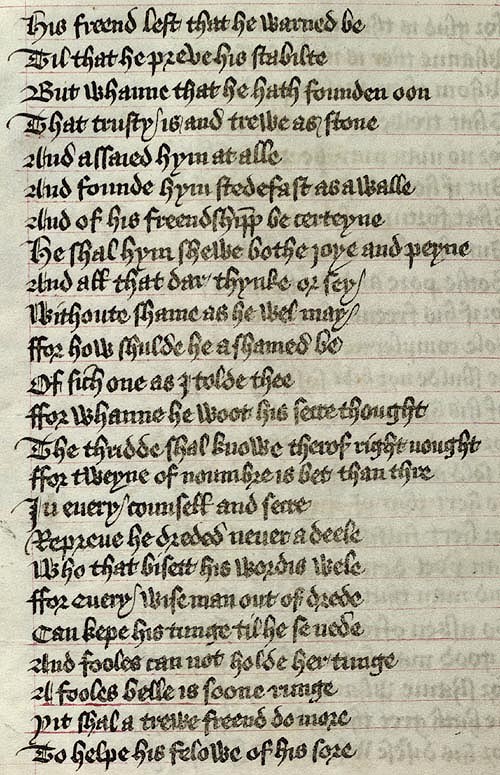 His freend lest that he warned be
Til that he preve his stabilte
But whanne that he hath founden oon
That trusty / is and trewe as / stone
And assaied hym at alle
And founde hym stedefast as a walle
And of his freendshipp be certeyne
He shal hym shewe bothe joye and peyne
And all that dar thynke or sey /
Withoute shame as he wel may /
ffor how shulde he ashamed be
Of sich one as I tolde thee
ffor whanne he woot his secre thought
The thridde shal knowe therof right nought
ffor tweyne of noumbre is bet than thre
In every / counsell and secre
Repreve he dreded never a deele
Who that bisett his wordis wele
ffor every / wise man out of drede
Can kepe his tunge til he se nede
And fooles can not holde her tunge
A fooles belle is soone runge
Yit shal a trewe freend do more
To helpe his felowe of his sore